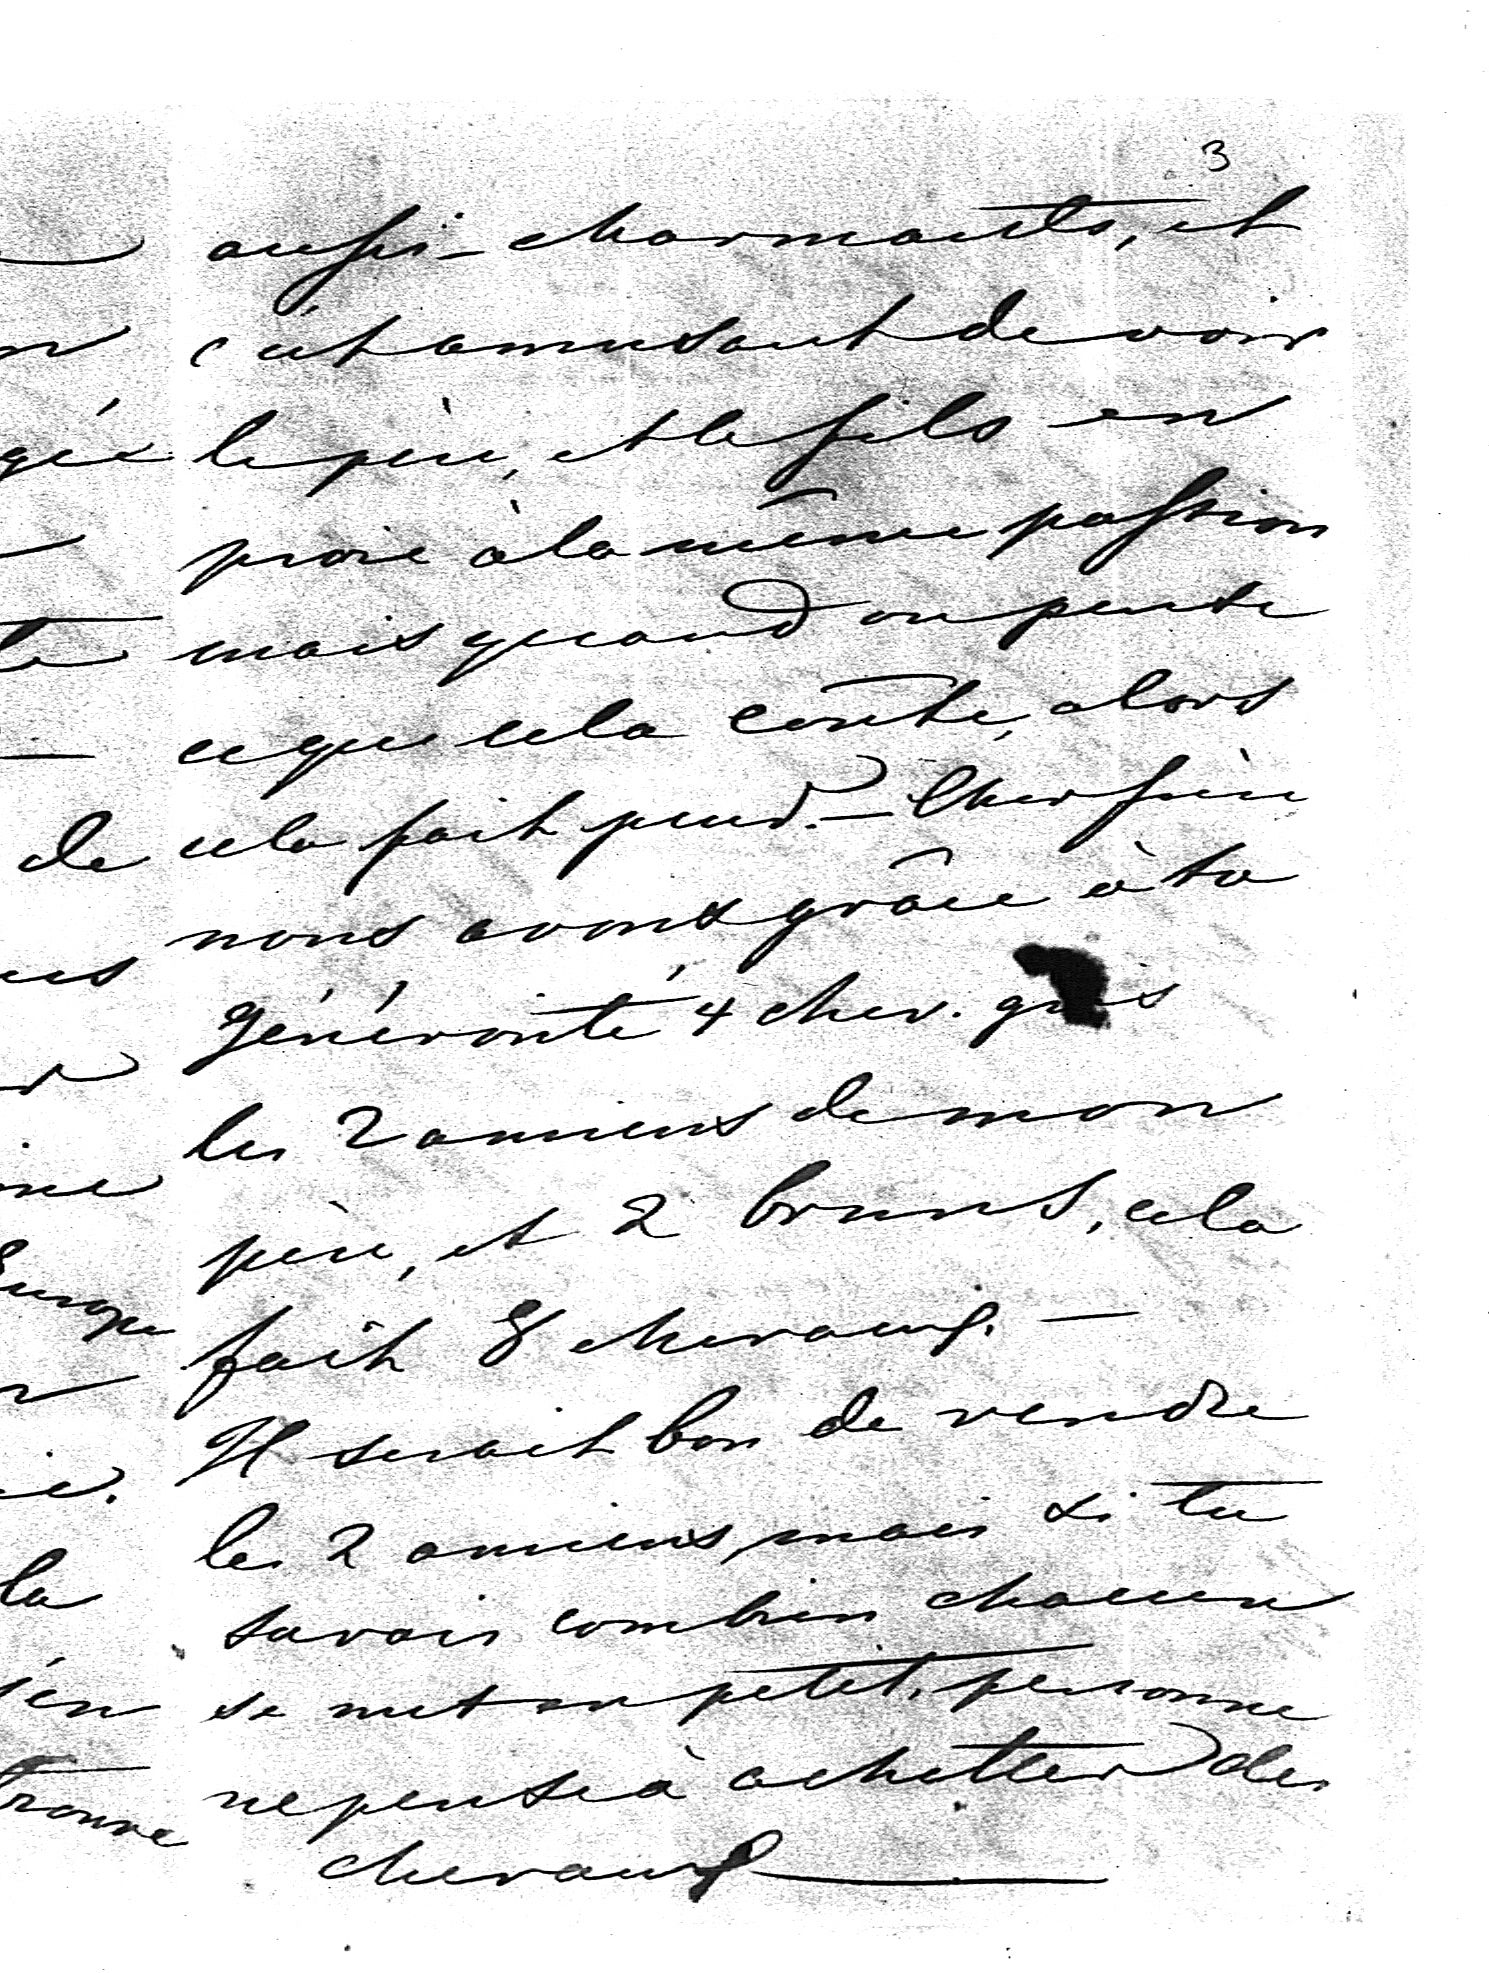 3
aussi charmants, et
c'est amusant de voir
le père, et le fils en
proie à la même passion
mais quand on pense
ce que cela coûte, alors
cela fait peur. – Cher frère
nous avons grâce à ta
générosité 4 chev. gris
les 2 anciens de mon
père, et 2 bruns, cela
fait 8 chevaux. —
Il serait bon de vendre
les 2 anciens, mais si tu
savais combien chacun
se met en petit, personne
ne pense à achetter des
chevaux —
de
Europe
la
trouve